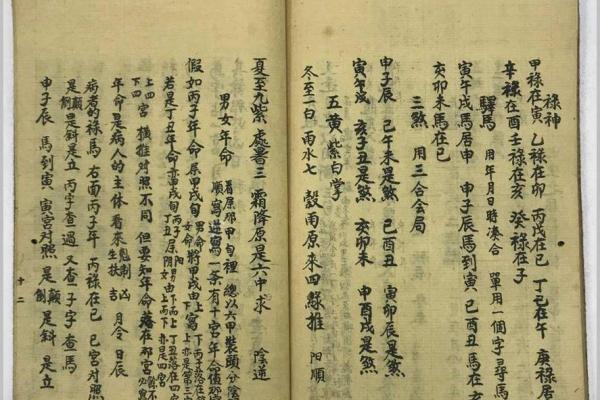 禄神
甲禄在寅 乙禄在卯 丙戊在巳 丁己在午 庚禄居
辛禄在酉 壬禄在亥 癸禄在子
驛馬 用年月日時湊合 單用一個字尋馬
寅午戌馬居申 申子辰馬到寅 巳酉丑馬在亥
亥卯未馬在巳
三煞 用三合会局
申子辰 巳午未是煞 巳酉丑 寅卯辰是煞
寅午戌 亥子丑是煞 亥卯未 申酉戌是煞
五黄紫白掌
冬至一白 雨水七 穀雨原來四綠推 阳順
夏至九紫 處暑三 霜降原是六中求 陰逆
男女年命 看居那甲旬裡 總以六甲裝頭分陰
順寫逆寫一条有十宮年命值那宮
假如丙子年命 屬甲戌旬 男命將甲戌由上寫下
若是丁丑年命亦甲戌旬
上四宮 橫推对照不同 但要知年命落在那宮
下四
年命是病人的主体 看來 凶 吉 月令日辰
病者的禄馬 右面丙子年 丙禄在巳 巳宮对照
是顛是斜是立 丙字查過 又查子字 查馬
倒
申子辰 馬到寅 寅宮对照 是顛 是斜 是立
倒
十二